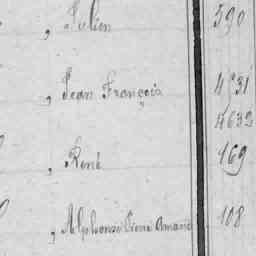 , Julien 590
, Jean François 4°31
4632
, René 169
, Alphonse Pierre Amand 108